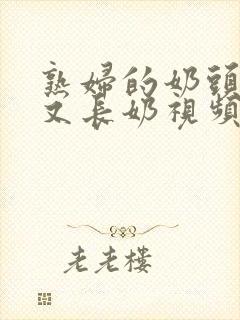 熟婦的奶頭
又長奶視頻
老老樓